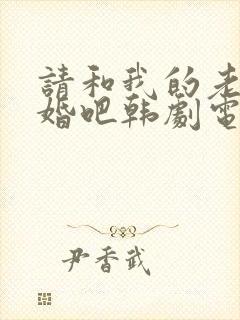 請和我的老
婚吧韩劇電
尹香武